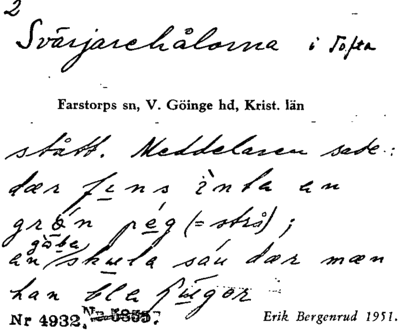 2
Svärjarehålorna i Tofta
Farstorps sn, V. Göinge hd, Krist. län
stått. Meddelaren sade:
dær fins inta an
grøn pég (= strå);
göba
an skula sau dær mæn
han ble
Nr 4932. Erik Bergenrud 1951.